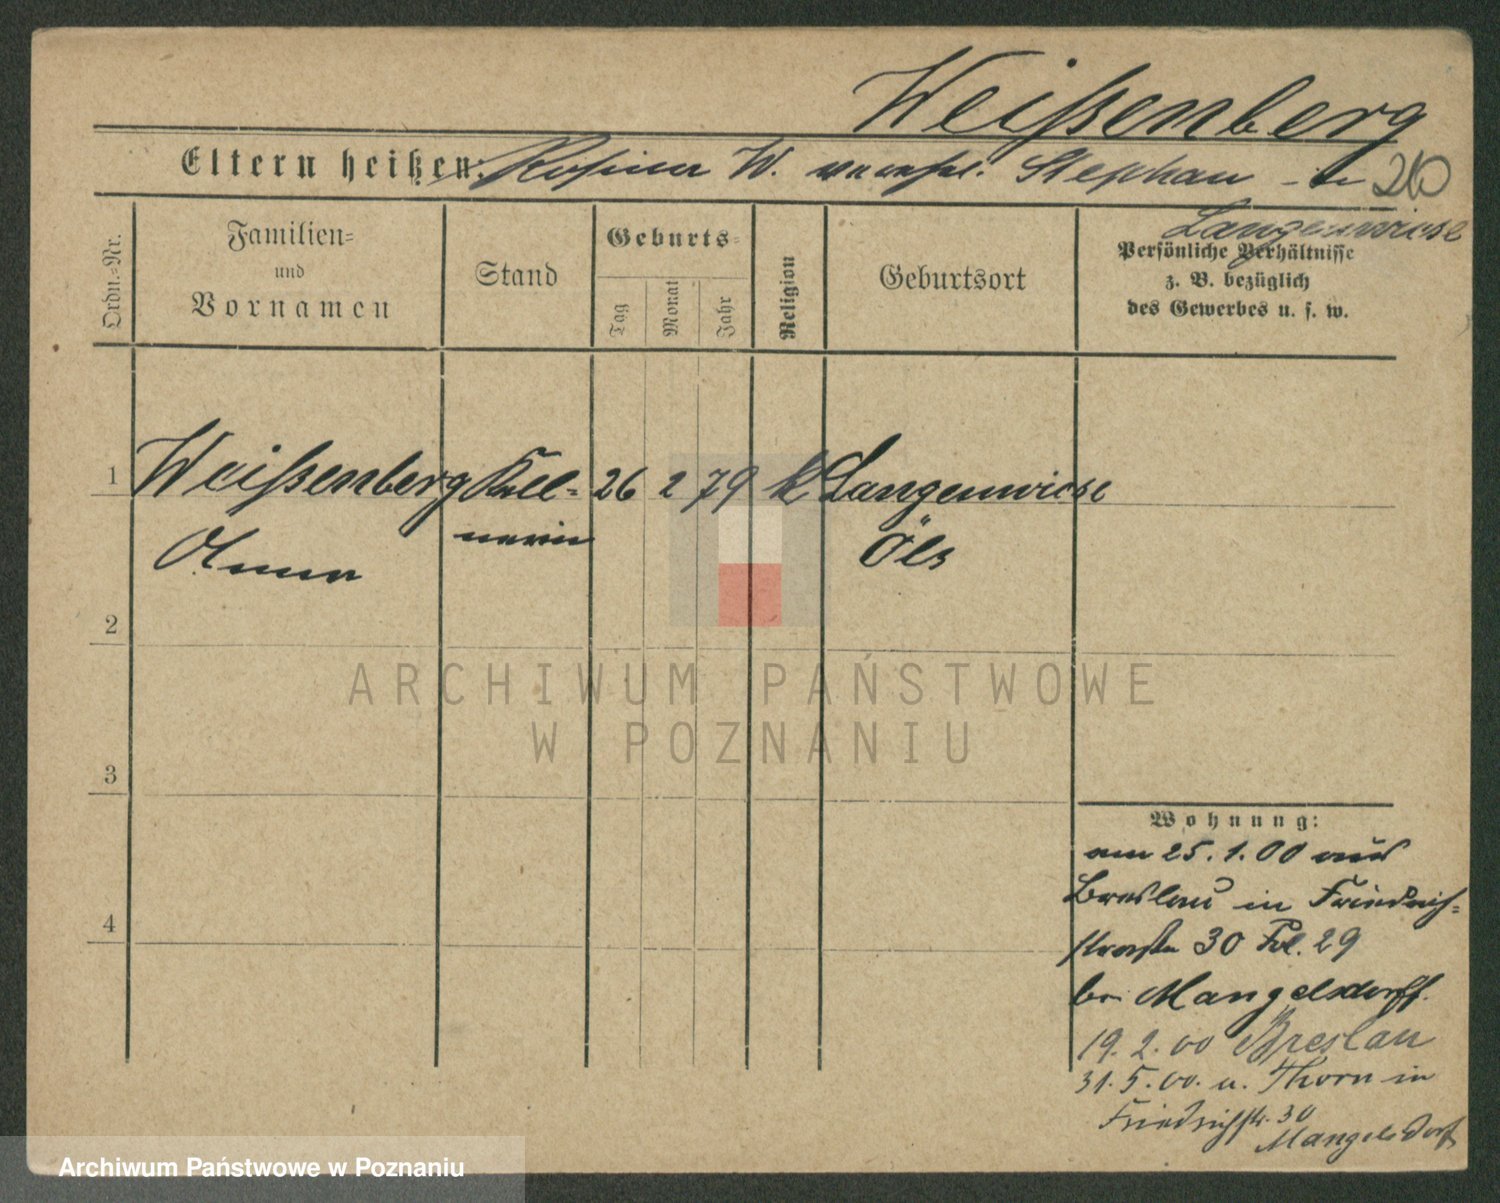 Weißenberg
Eltern heißen: Rosina W. verehel. Stephan in 20
Langenwiese
Ordn.-Nr.
Familien-
und
Vornamen
Stand
Geburts-
Tag
Monat
Jahr
Religion
Geburtsort
Persönliche Verhältnisse
z. B. bezüglich
des Gewerbes u. s. w.
1 Weißenberg Kell- 26 2 79 k Langenwiese
Anna nerin Öls
2
ARCHIWUM PAŃSTWOWE
W POZNANIU
3
Wohnung:
am 25.1.00 aus
Breslau in Friedrich-
4
straße 30 29
bei Mangelsdorff.
19.2.00 Breslau
31.5.00. u. Thorn in
Friedrichstr. 30
Mangelsdorff
Archiwum Państwowe w Poznaniu